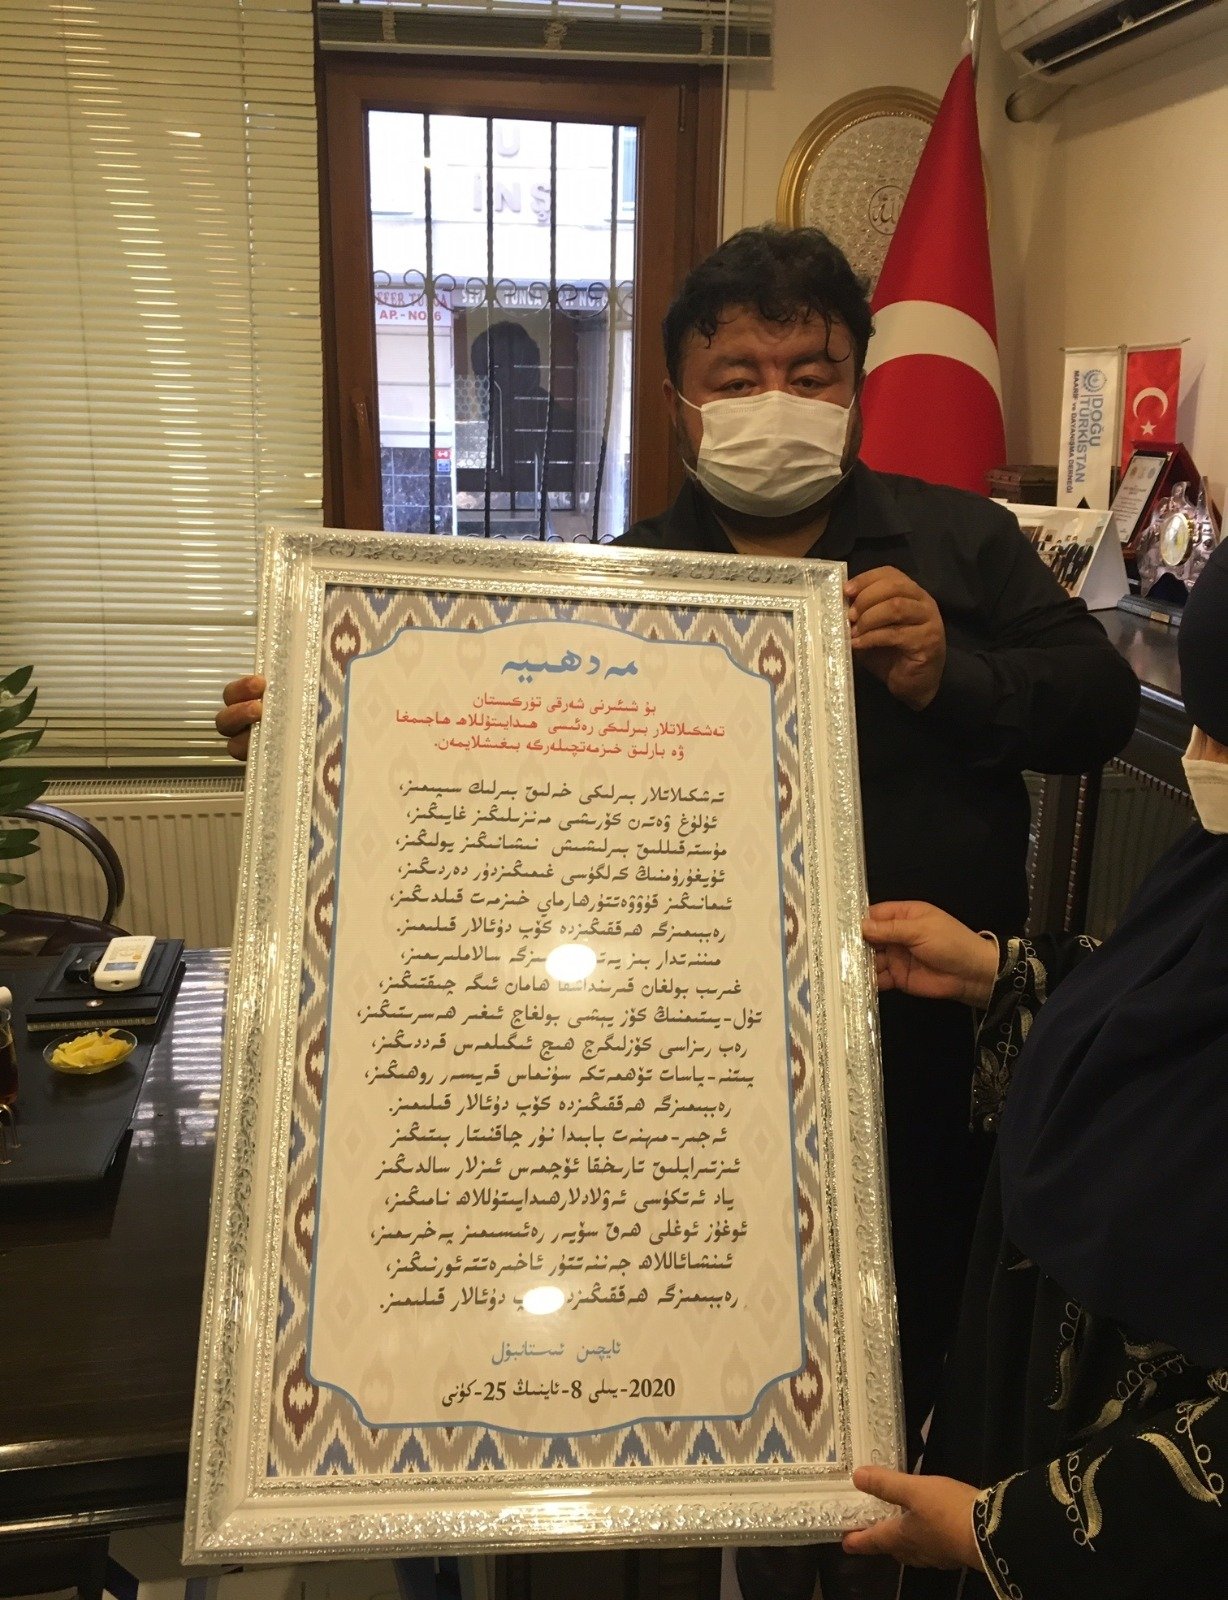 U
İNŞ
AP.- NO: 6
DOĞU
TÜRKİSTAN
MAARİF ve DAYANIŞMA DERNEĞİ
مەدھىيە
بۇ شېئىرنى شەرقى تۈركىستان
تەشكىلاتلار بىرلىكى رەئىسى ھىدايىتۇللاھ ھاجىمغا
ۋە بارلىق خىزمەتچىلەرگە بىغىشلايمەن.
تەشكىلاتلار بىرلىكى خەلىق بىرلىك سىيىمىز،
ئۇلۇغ ۋەتەن كۆرىشى مەنزىلىڭىز غايىڭىز،
مۇستەقىللىق بىرلىشىش نىشانىڭىز يولىڭىز،
ئۇيغۇرۇمنىڭ كەلگۈسى غىمىڭىزدۇر دەردىڭىز،
ئىمانىڭىز قۇۋۋەتتۇرھارماي خىزمەت قىلدىڭىز،
رەببىمىزگە ھەققىڭىزدە كۆپ دۇئالار قىلىمىز.
مىننەتدار بىز سالاملىرىمىز،
غىرىب بولغان قىرىنداشقا ھامان ئىگە چىقتىڭىز،
تۇل-يىتىمنىڭ كۆز يېشى بولغاچ ئىغىر ھەسرىتىڭىز،
رەب رىزاسى كۆزلىگرچ ھىچ ئىگىلمەس قەددىڭىز،
پىتنە-پاسات تۆھمەتكە سۇنماس قەيسەر روھىڭىز،
رەببىمىزگە ھەققىڭىزدە كۆپ دۇئالار قىلىمىز.
ئەجىر-مىھنەت بابىدا نۇر چاقنىتار بىتىڭىز
ئىزتىراپلىق تارىخقا ئۆچمەس ئىزلار سالدىڭىز
ياد ئەتكۈسى ئەۋلادلارھىدايىتۇللاھ نامىڭىز،
ئوغۇز ئوغلى ھەق سۆيەر رەئىسىمىز پەخرىمىز،
ئىنشائاللاھ جەننەتتۇر ئاخىرەتتەئورنىڭىز،
رەببىمىزگە دۇئالار قىلىمىز.
ئايچىن ئىستانبۇل
2020-يىلى 8-ئاينىڭ 25-كۈنى